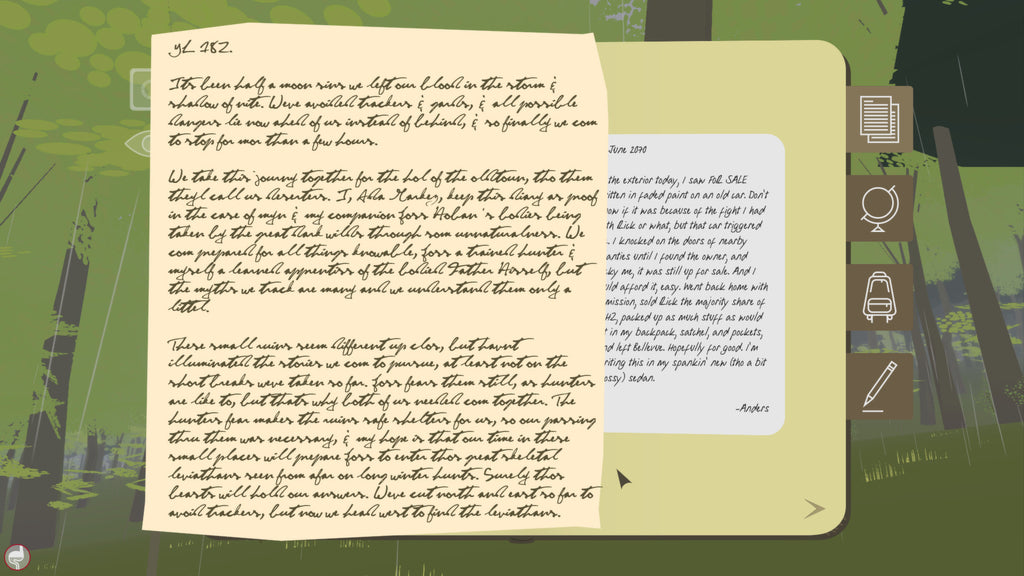 yL 182.
Its been half a moon sins we left our blood in the storm &
shadow of nite. Weve avoided trackers & gards, & all possible
dangers lie now ahed of us insted of behind, & so finally we com
to stop for mor than a few hours.
We take this journey together for the hol of the old toun, tho them
theyl call us deserters. I, Ada Marker, keep this diary as proof
in the case of myn & my companion Joss Holan's bodies being
taken by the great dark wilds through som unnaturalness. We
com prepared for all things knowable, Joss a trained hunter &
myself a learned apprentiss of the bodied Father Horself, but
the myths we track are many and we understand them only a
littel.
These small ruins seem different up clos, but havnt
illuminated the stories we com to pursue, at least not on the
short breaks weve taken so far. Joss fears them still, as hunters
are like to, but thats why both of us needed com together. The
hunters fear makes the ruins safe shelters for us, so our passing
thru them was necessary, & my hope is that our time in these
small places will prepare Joss to enter thos great skeletal
leviathans seen from afar on long winter hunts. Surely thos
beasts will hold our answers. Weve cut north and east so far to
avoid trackers, but now we head west to find the leviathans.
June 2070
the exterior today, I saw FOR SALE
itten in faded paint on an old car. Don't
ow if it was because of the fight I had
th Rick or what, but that car triggered
. I knocked on the doors of nearby
anties until I found the owner, and
cky me, it was still up for sale. And I
uld afford it, easy. Went back home with
mission, sold Rick the majority share of
H2, packed up as much stuff as would
t in my backpack, satchel, and pockets,
nd left Bellevue. Hopefully for good. I'm
riting this in my spankin' new (tho a bit
ossy) sedan.
-Anders